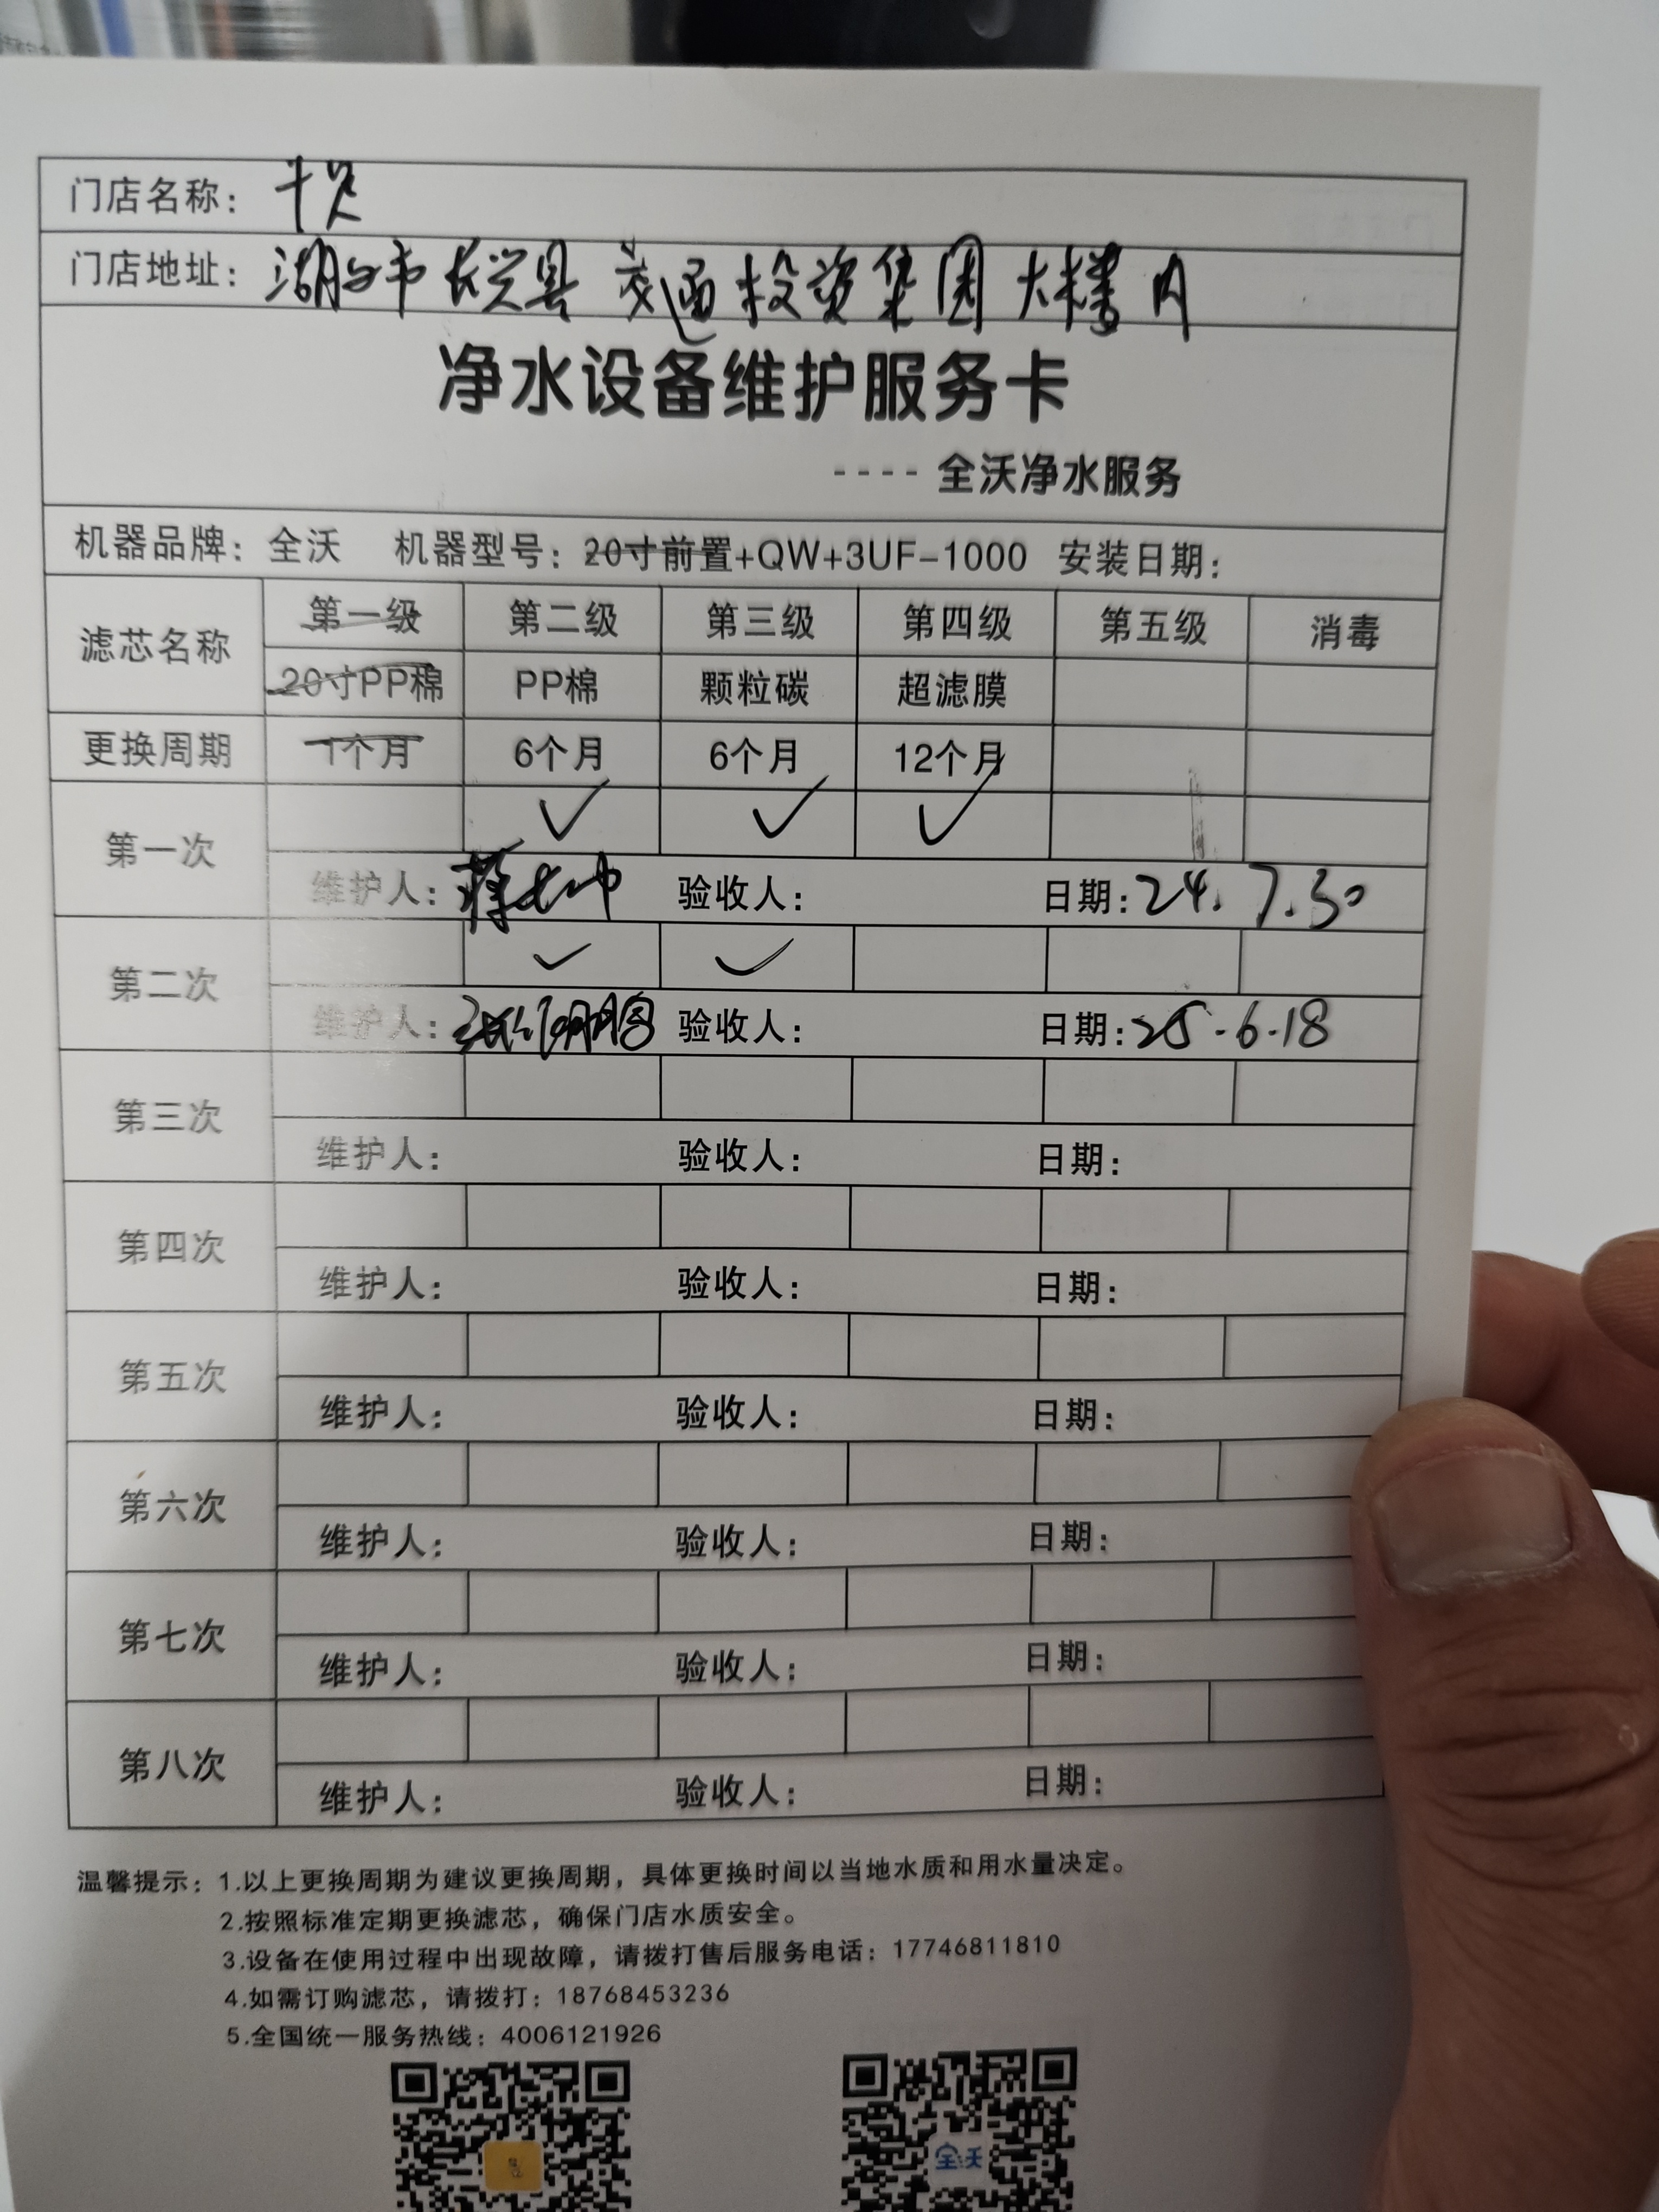 门店名称：
门店地址：湖州市长兴县交通投资集团大楼内
净水设备维护服务卡
----全沃净水服务
机器品牌：全沃 机器型号：20寸前置+QW+3UF-1000 安装日期：
滤芯名称 第一级 第二级 第三级 第四级 第五级 消毒
20寸PP棉 PP棉 颗粒碳 超滤膜
更换周期 1个月 6个月 6个月 12个月
第一次 ✓ ✓ ✓
维护人： 验收人： 日期：24.7.30
第二次 ✓ ✓
维护人： 验收人： 日期：25-6-18
第三次
维护人： 验收人： 日期：
第四次
维护人： 验收人： 日期：
第五次
维护人： 验收人： 日期：
第六次
维护人： 验收人： 日期：
第七次
维护人： 验收人： 日期：
第八次
维护人： 验收人： 日期：
温馨提示：1.以上更换周期为建议更换周期，具体更换时间以当地水质和用水量决定。
2.按照标准定期更换滤芯，确保门店水质安全。
3.设备在使用过程中出现故障，请拨打售后服务电话：17746811810
4.如需订购滤芯，请拨打：18768453236
5.全国统一服务热线：4006121926
全沃